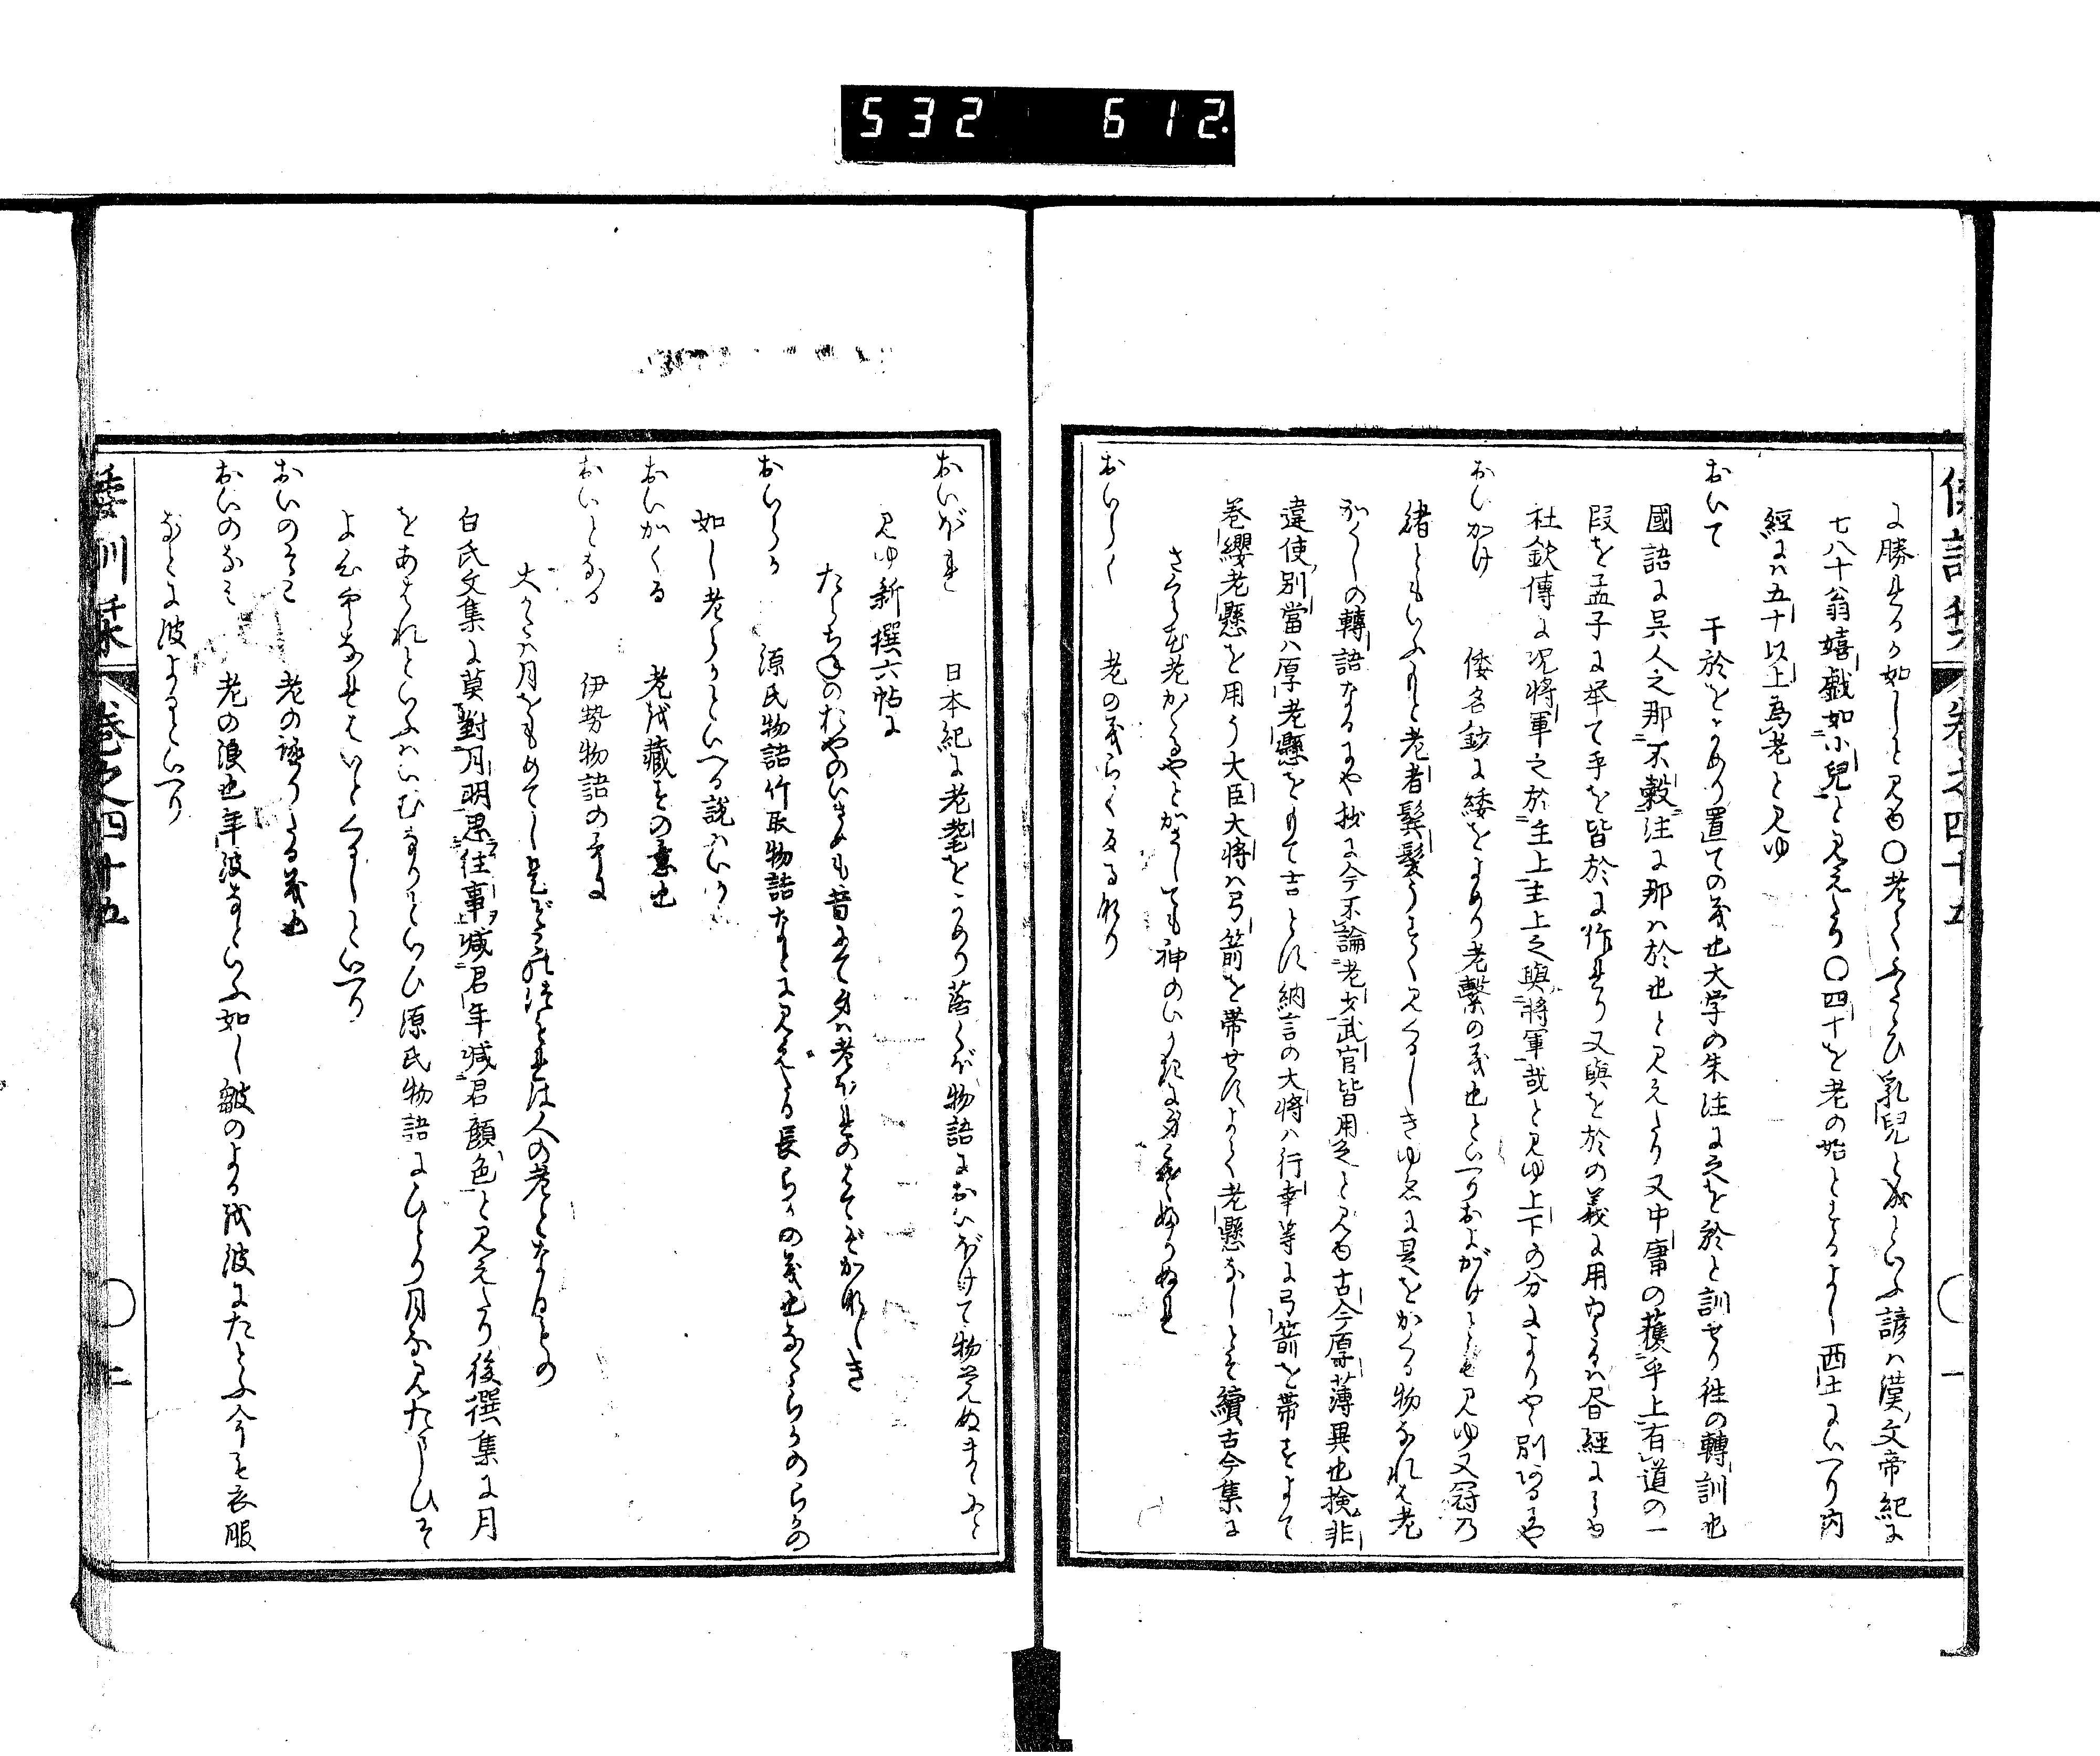 532 612.
倭訓栞 巻之四十五 一
に勝るゝか如しと見ゆ〇老てふたゝひ乳児と成といふ諺ハ漢文帝紀に
七八十翁嬉戯如小兒と見えたり〇四十を老の始とするよし西土にいへり内
經にハ五十以上為老と見ゆ
おいて 于於をよめり置ての義也大学の朱注に之を於と訓せり往の轉訓也
國語に呉人之那不穀注に那ハ於也と見えたり又中庸の獲乎上有道の一
段を孟子に挙て乎を皆於に作れり又與を於の義に用ゐたるハ
社欽傳に况將軍之於主上主上之與將軍哉と見ゆ上下の分によりや別あるにや
おいかけ 倭名鈔に緌をよめり老繫の義也といへりおよがけとも見ゆ又冠の
緒ともいふもと老者鬢髮うすく見くるしきゆゑに是をかくる物なれハ老
かくしの轉語なるにや抄に今不論老少武官皆用之と見ゆ古今厚薄異也検非
違使別當ハ厚老懸をもて吉とす納言の大將ハ行幸等に弓箭を帯すよて
巻纓老懸を用う大臣大將ハ弓箭を帯せすよて老懸なしとそ續古今集に
さくら花老かくるやとかさしても神のいかきに身こそふりぬれ
おいらく 老の義らくる反る也
おいぼれ 日本紀に老耄をよめり落くぼ物語においぼけて物覚ぬまゝにと
見ゆ新撰六帖に
たらちねのおやのいさめも昔にて身ハ老ほれのはてぞかなしき
おいらか 源氏物語竹取物語なとに見えたる長らかの義也なたらかのらかの
如し老らかといへる説ハいか
おいかくる 老を藏すの意也
おいとなる 伊勢物語の哥に
大かたハ月をもめてし是ぞこの積れは人の老となるもの
白氏文集に莫對月明思往事減君年減君顔色と見えたり後撰集に月
をあはれといふハいむなりといひ源氏物語にひとり月な見たまひそ
おいのそこ 老の極りたる義也
おいのなみ 老の浪也年波なといふ如し皺のよるを波にたとふ今も衣服
なとに波よるといへり
倭訓栞 巻之四十五